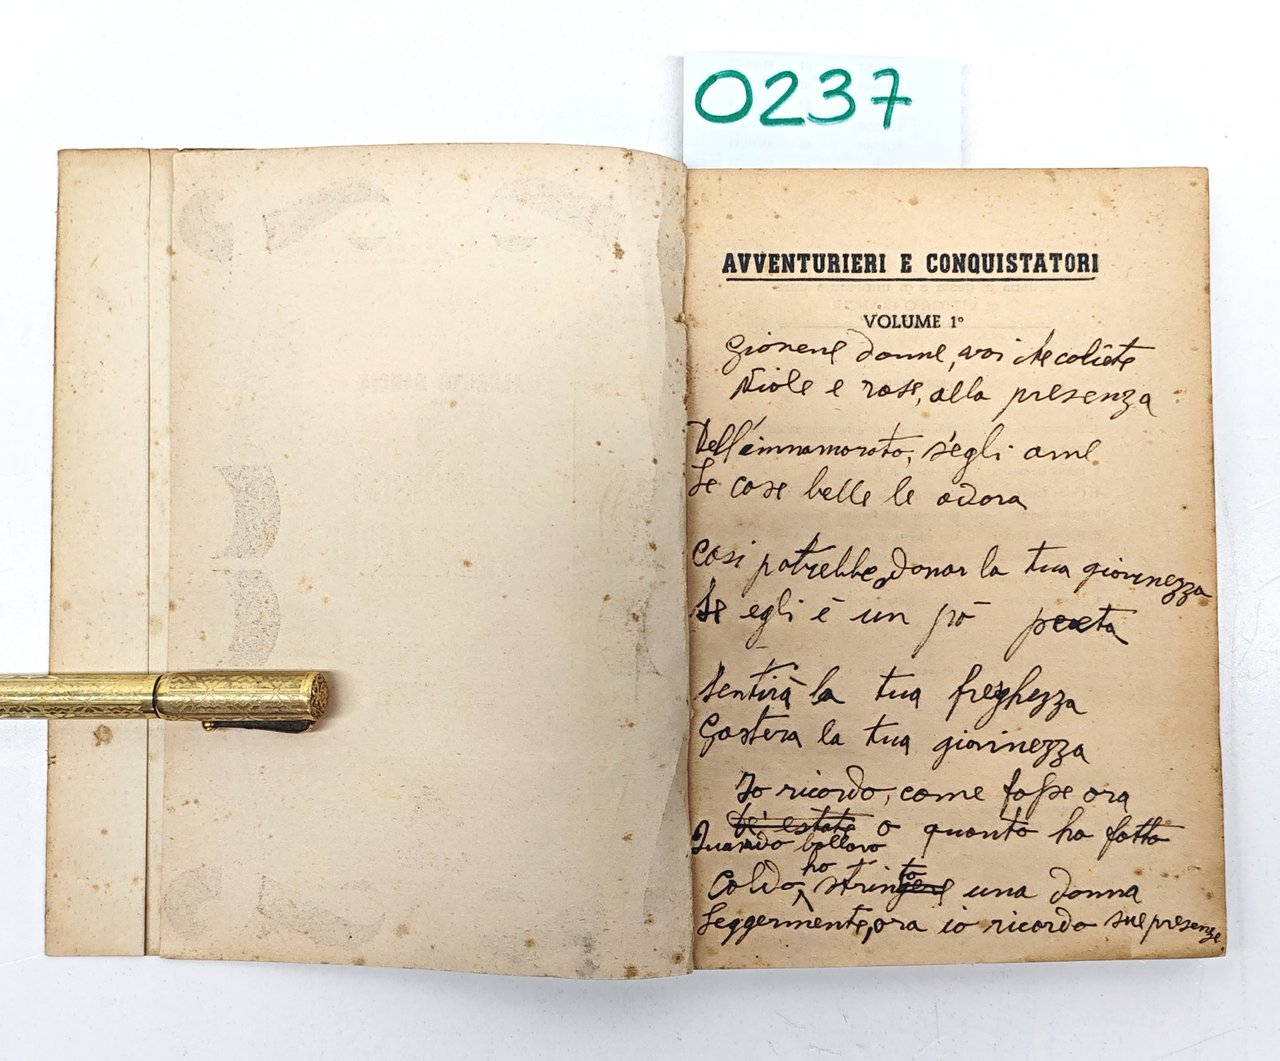 0237
AVVENTURIERI E CONQUISTATORI
VOLUME 1º
Giovene donne, voi che coliete
Viole e rose, alla presenza
Dell'innamorato, s'egli ame
Le cose belle le adora
Cosi potrebbe donar la tua giovinezza
Se egli è un pò poeta
Sentirà la tua freghezza
Gosterà la tua giovinezza
Io ricordo, come fosse ora
te' estate o quanto ha fatto
Quando ballavo
ho to
Caldo, una donna
Leggermente, ora io ricordo sue presenze